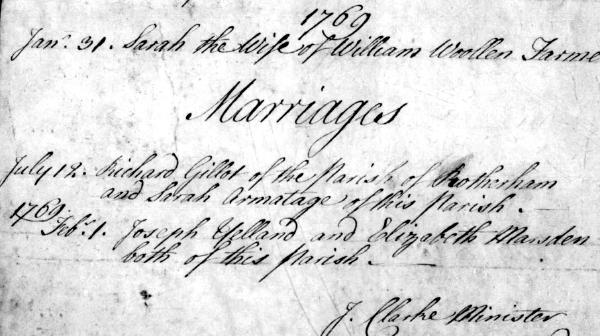 1769
Jan.y 31. Sarah the Wife of William Woollen Farme
Marriages
July 12. Richard Gillot of the Parish of Rotherham
and Sarah Armatage of this Parish.
1769
Feb.y 1. Joseph and Elizabeth Marsden
both of this Parish.
J. Clarke Minister